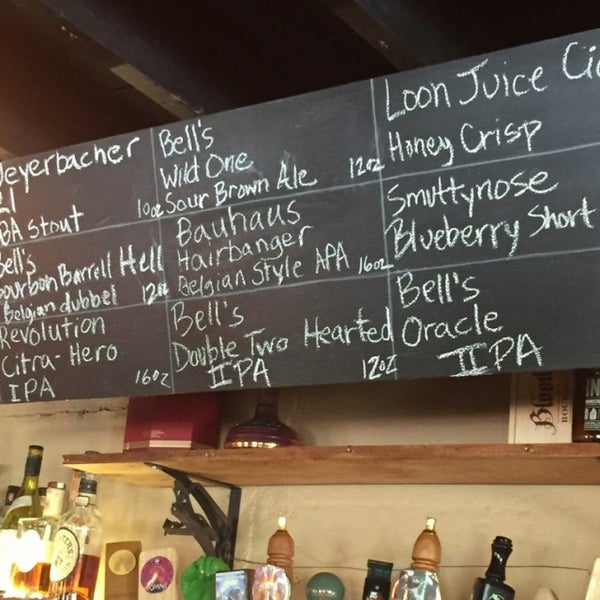 eyerbacher
21
BA Stout 10oz
Bell's
Wild One
Sour Brown Ale 12oz
Loon Juice Ci
Honey Crisp
Bell's
ourbon Barrell Hell
Belgian dubbel 12oz
Bauhaus
Hairbanger
Belgian Style APA 16oz
Smuttynose
Blueberry Short
Revolution
Citra-Hero
IPA 16oz
Bell's
Double Two Hearted
IIPA 12oz
Bell's
Oracle
IIPA